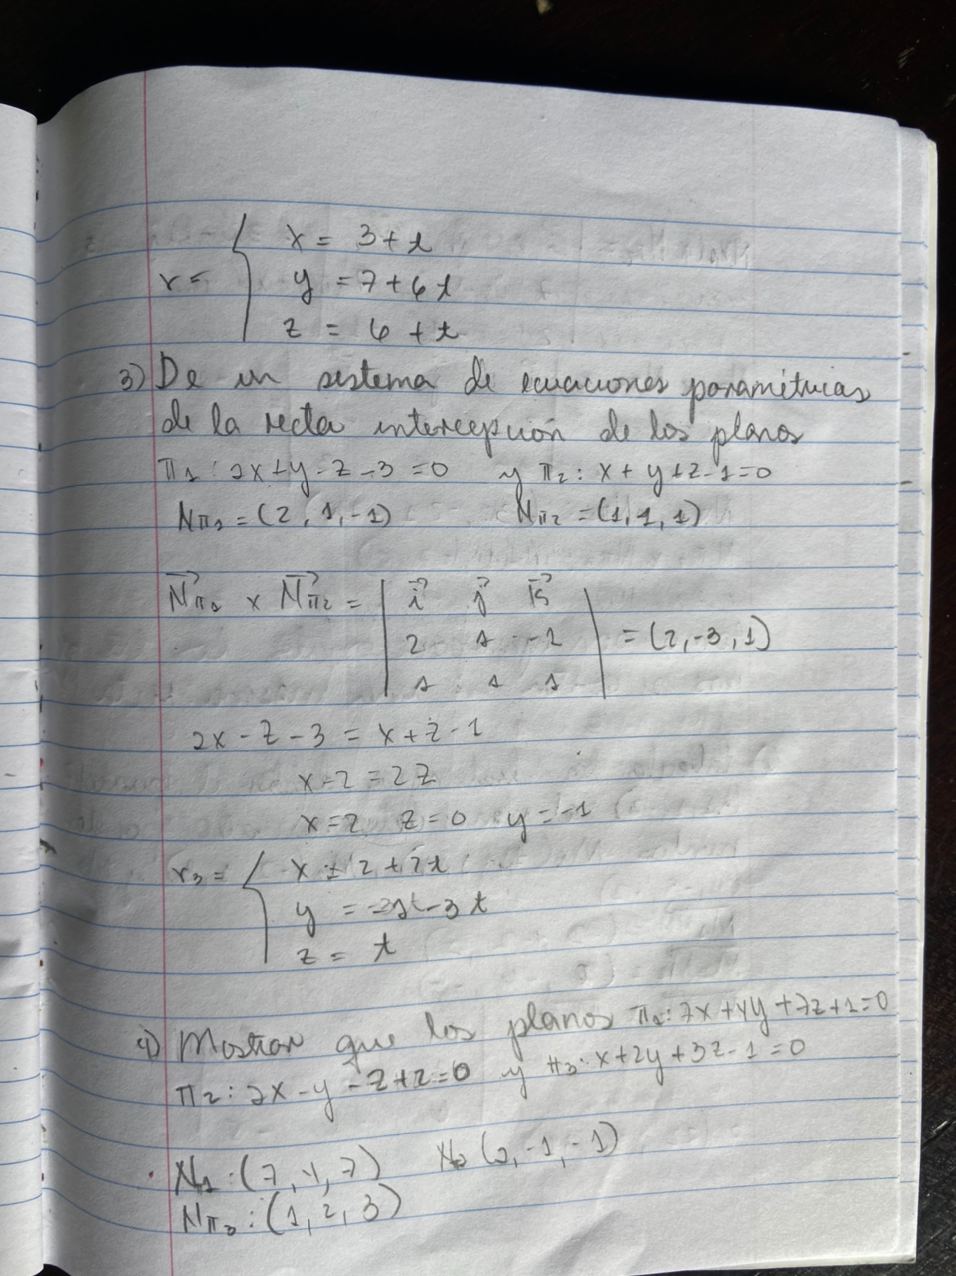 x = 3 + t
r = { y = 7 + 6t
z = 6 + t
3) De un sistema de ecuaciones paramétricas
de la recta intercepción de los planos
π₁: 2x + y - z - 3 = 0 y π₂: x + y + z - 1 = 0
Nπ₁ = (2, 1, -1) Nπ₂ = (1, 1, 1)
Nπ₁ × Nπ₂ = | i j k
2 1 -1 | = (2, -3, 1)
1 1 1
2x - z - 3 = x + z - 1
x - 2 = 2z
x = 2 z = 0 y = -1
r₃ = { x = 2 + 2t
y = - 3t
z = t
4) Mostrar que los planos π₁: 7x + 4y + 7z + 1 = 0
π₂: 2x - y - z + 2 = 0 y π₃: x + 2y + 3z - 1 = 0
N₁: (7, 4, 7) N₂ (2, -1, -1)
Nπ₃: (1, 2, 3)